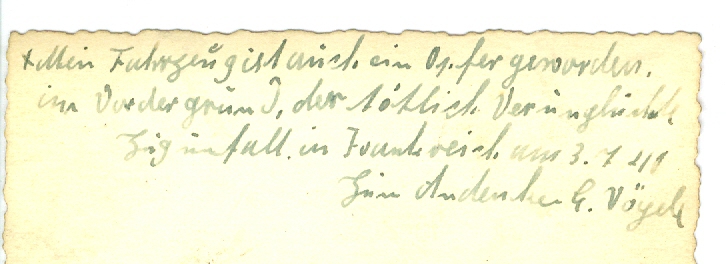 x Mein Fahrzeug ist auch ein Opfer geworden.
im Vordergrund, der tötlich Verunglückte
Zugunfall in Frankreich am 3. 7 41
Zum Andenken G. Vögele